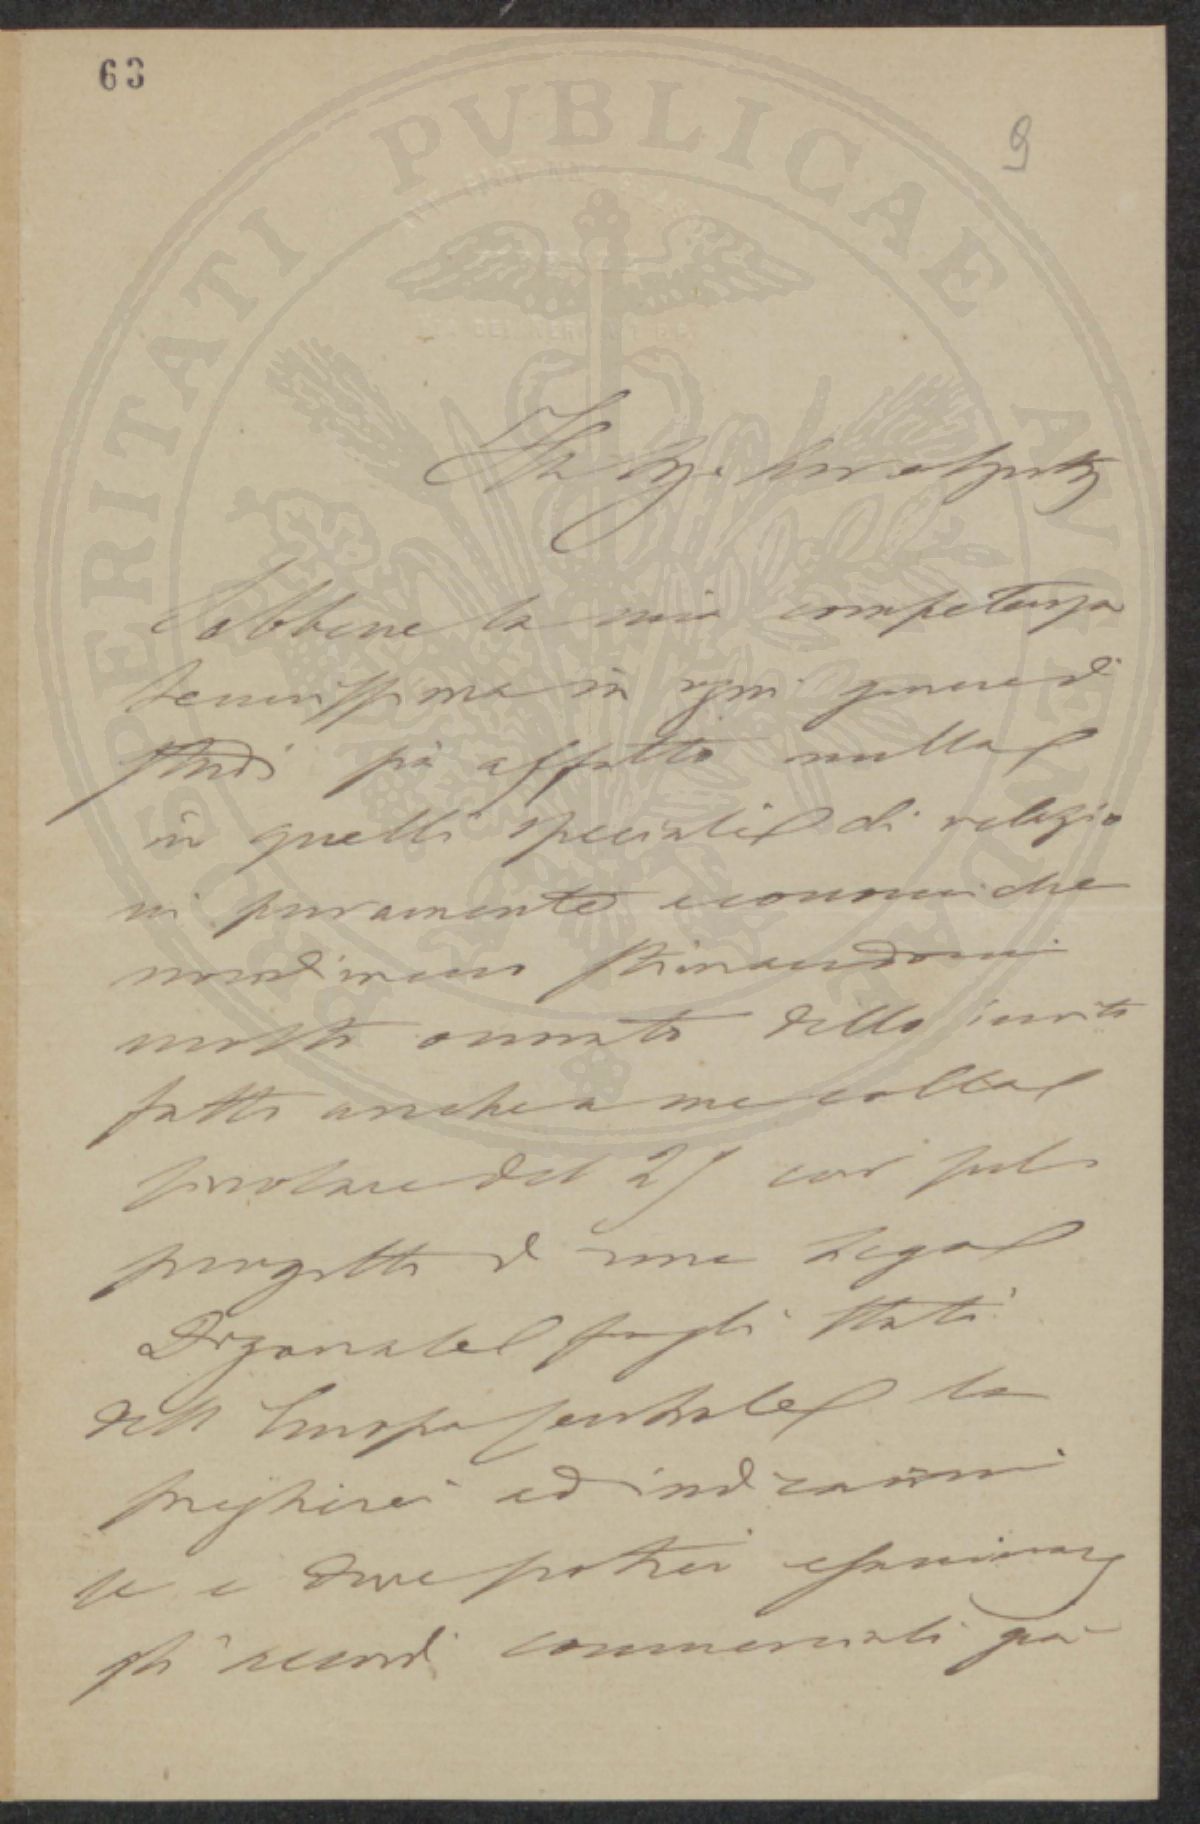 63
9
PROSPERITATI PVBLICAE AVGENDAE
Sebbene la mia competenza
tenuissima in ogni genere di
studi sia affatto nulla
in quelli speciali di relazio
ni puramente economiche
nondimeno stimandomi
molto onorato dello invito
fatto anche a me colla
circolare del 27 cor sul
progetto di una Lega
Doganale fra gli Stati
dell Europa Centrale la
pregherei ad indicarmi
se e dove potrei esaminare
gli accordi commerciali già